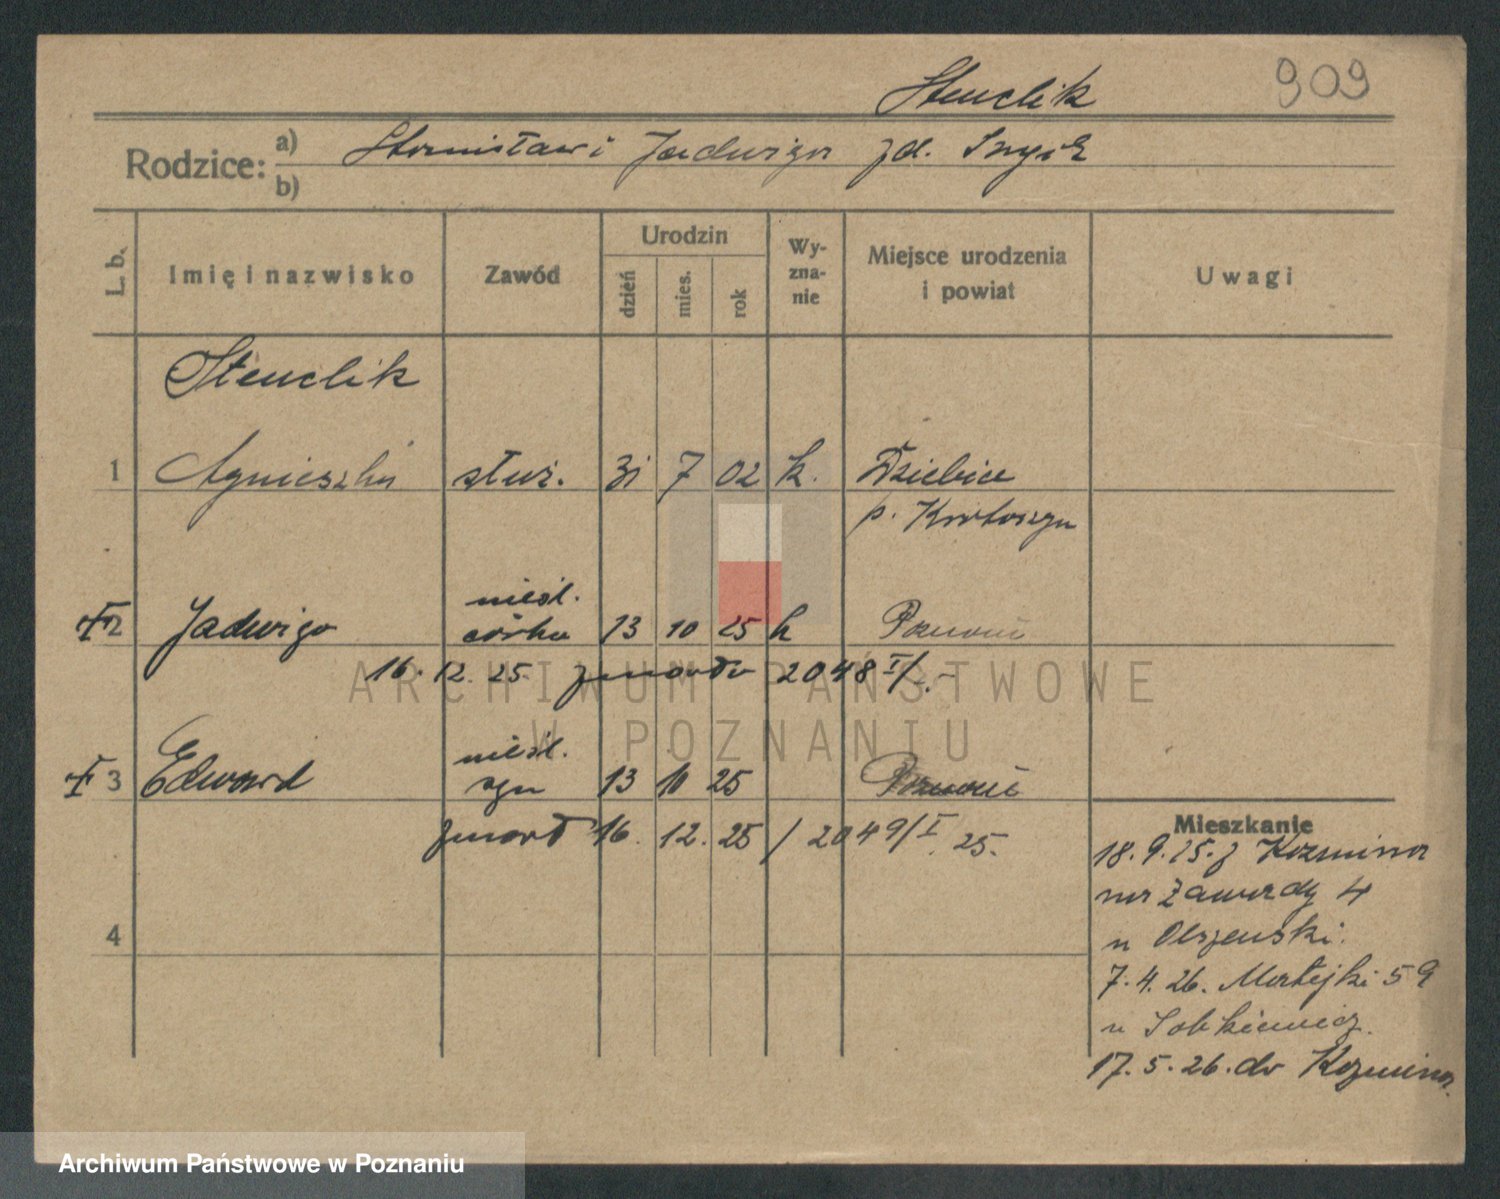 Stenclik 909
Rodzice: a) Stanisław i Jadwiga zd.
b)
L. b. Imię i nazwisko Zawód Urodzin dzień mies. rok Wy-zna-nie Miejsce urodzenia i powiat Uwagi
Stenclik
1 Agnieszka służ. 31 7 02 k. Dzielice
p. Krotoszyn
nieśl.
2 Jadwiga córka 13 10 25 k Poznań
16. 12. 25 zmarła 2048 I/
nieśl.
3 Edward syn 13 10 25 Poznań
zmarł 16. 12. 25 / 2049/I 25.
Mieszkanie
18. 9. 25. z Kozmina
na Zawady 4
u Olszewski.
4
7. 4. 26. Matejki 59
u Sobkiewicz.
17. 5. 26. do Kozmina.
ARCHIWUM PAŃSTWOWE
W POZNANIU
Archiwum Państwowe w Poznaniu